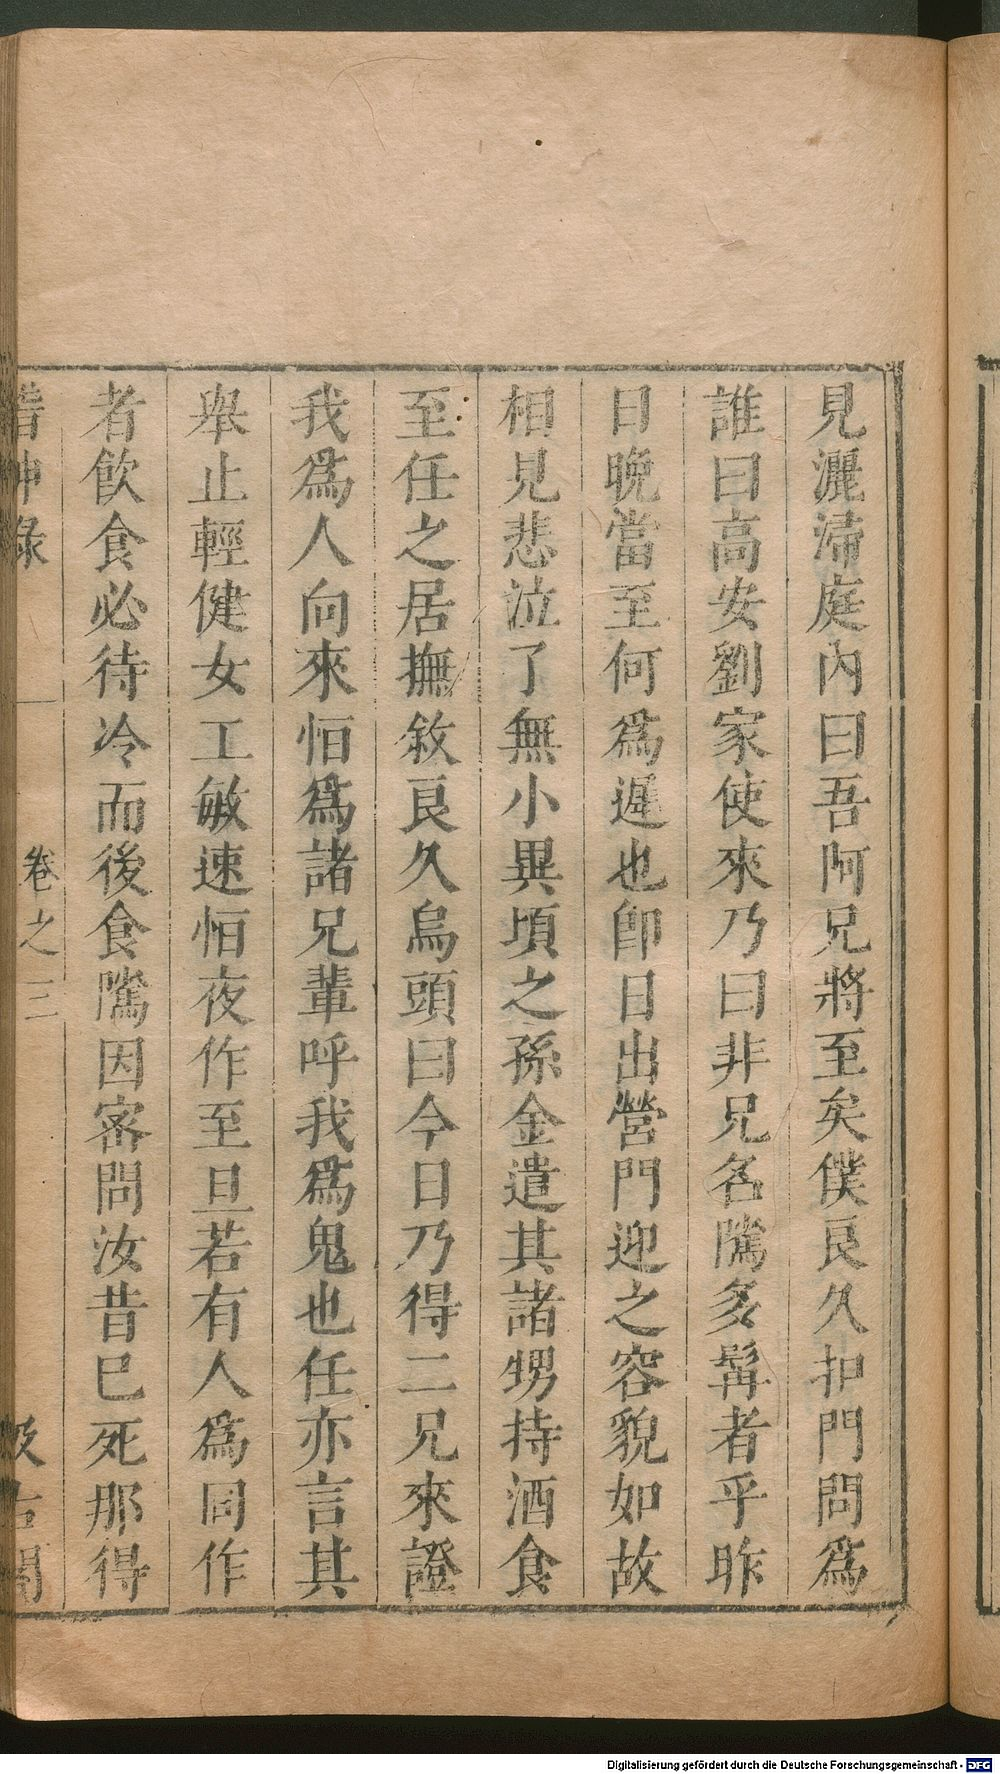 見灑掃庭內曰吾阿兄將至矣僕良久扣門問為
誰曰高安劉家使來乃曰非兄名隲多髯者乎昨
日晚當至何為遲也即日出營門迎之容貌如故
相見悲泣了無小異頃之孫金遣其諸甥持酒食
至任之居撫敘良久烏頭曰今日乃得二兄來證
我為人向來恒為諸兄輩呼我為鬼也任亦言其
舉止輕健女工敏速恒夜作至旦若有人為同作
者飲食必待冷而後食隲因密問汝昔已死那得
稽神錄
卷之三
汲古閣
Digitalisierung gefördert durch die Deutsche Forschungsgemeinschaft - DFG